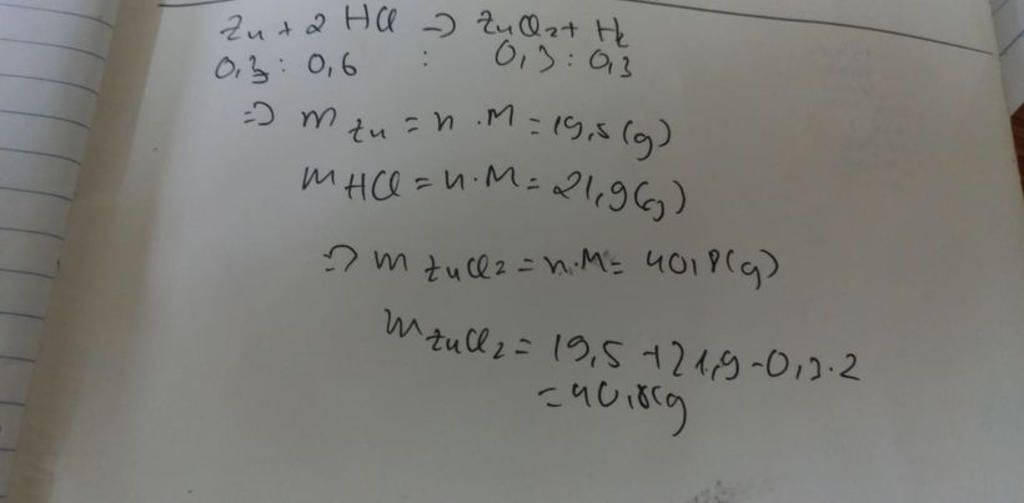 Zn + 2 HCl => ZnCl2 + H2
0,3 : 0,6 : 0,3 : 0,3
=> m Zn = n . M = 19,5 (g)
m HCl = n . M = 21,9 (g)
=> m ZnCl2 = n . M = 40,8 (g)
m ZnCl2 = 19,5 + 21,9 - 0,3 . 2
= 40,8 (g